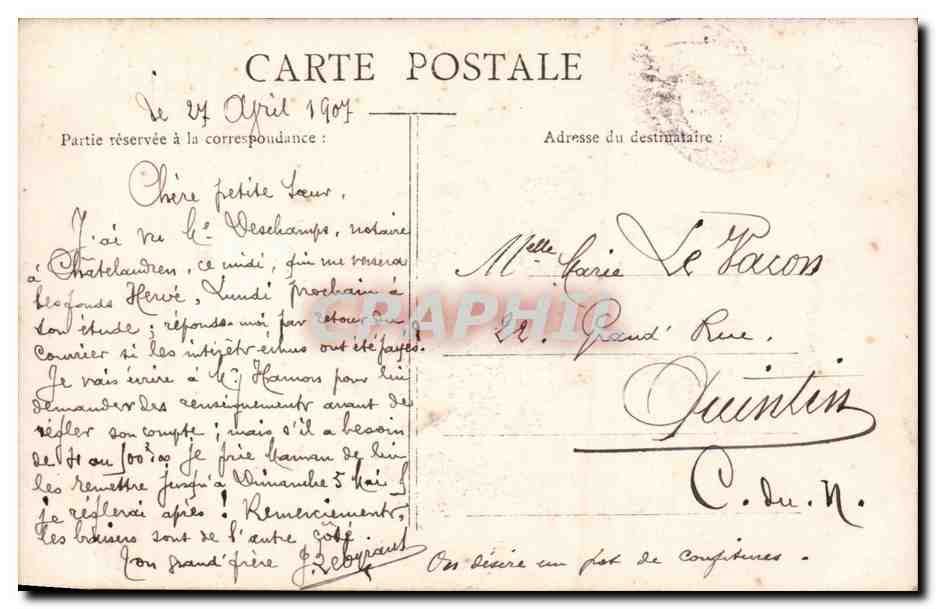 CARTE POSTALE
le 27 April 1907
Partie réservée à la correspondance :
Chère petite Sœur,
J'ai vu Me Deschamps, notaire
à Châtelaudren, ce midi, qui me versera
les fonds Hervé, Lundi prochain à
son étude ; réponds-moi par retour du
courrier si les intérêts échus ont été payés.
Je vais écrire à Mr pour lui
demander des renseignements avant de
régler son compte ; mais s'il a besoin
de ou 500 je prie Maman de lui
les remettre jusqu'à Dimanche 5 Mai &
je réglerai après ! Remerciements,
les baisers sont de l'autre côté.
Ton grand frère
Adresse du destinataire :
Melle Marie Le Vacon
22, Grand' Rue,
Quintin
C. du. N.
On désire un pot de confitures.
CPAPHIL